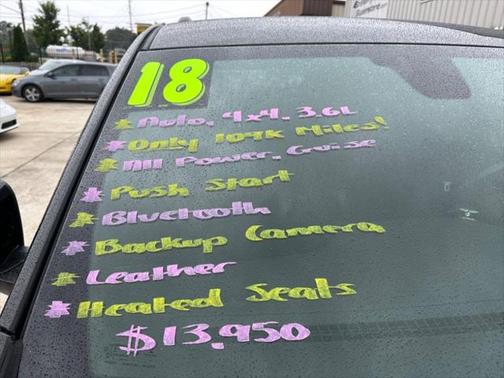 18
* Auto, 4x4, 3.6L
* Only 104K Miles!
* All Power, Cruise
* Push Start
* Bluetooth
* Backup Camera
* Leather
* Heated Seats
$13,950